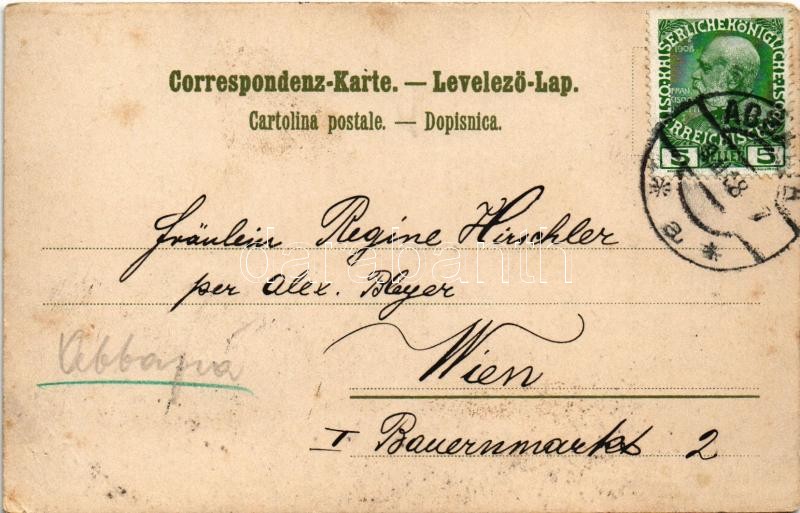 KAISERLICHE KÖNIGLICHE ÖS
1908
5 HELLER 5
Correspondenz-Karte. — Levelező-Lap.
Cartolina postale. — Dopisnica.
Fräulein Regine Hirschler
per Alex. Bleyer
Wien
I Bauernmarkt 2
Abbazia
darabanth